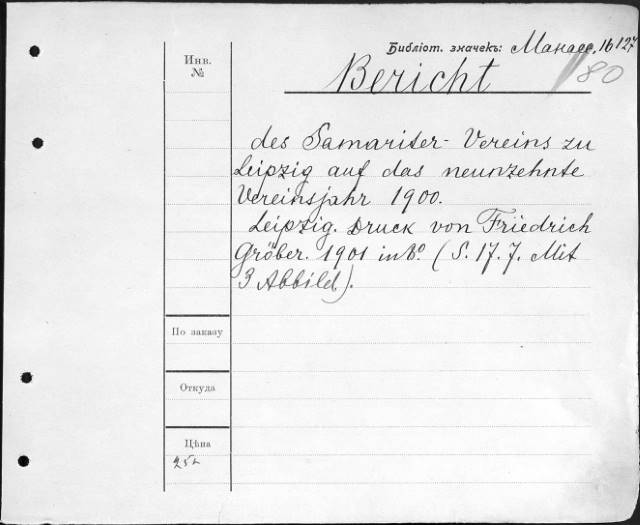 Библіот. значекъ: Манасе. 16 127
Инв.
№
Bericht
80
des Samariter-Vereins zu
Leipzig auf das neunzehnte
Vereinsjahr 1900.
Leipzig. Druck von Friedrich
Gröber. 1901 in 8º. (S. 17. 7. Mit
3 Abbild).
По заказу
Откуда
Цѣна